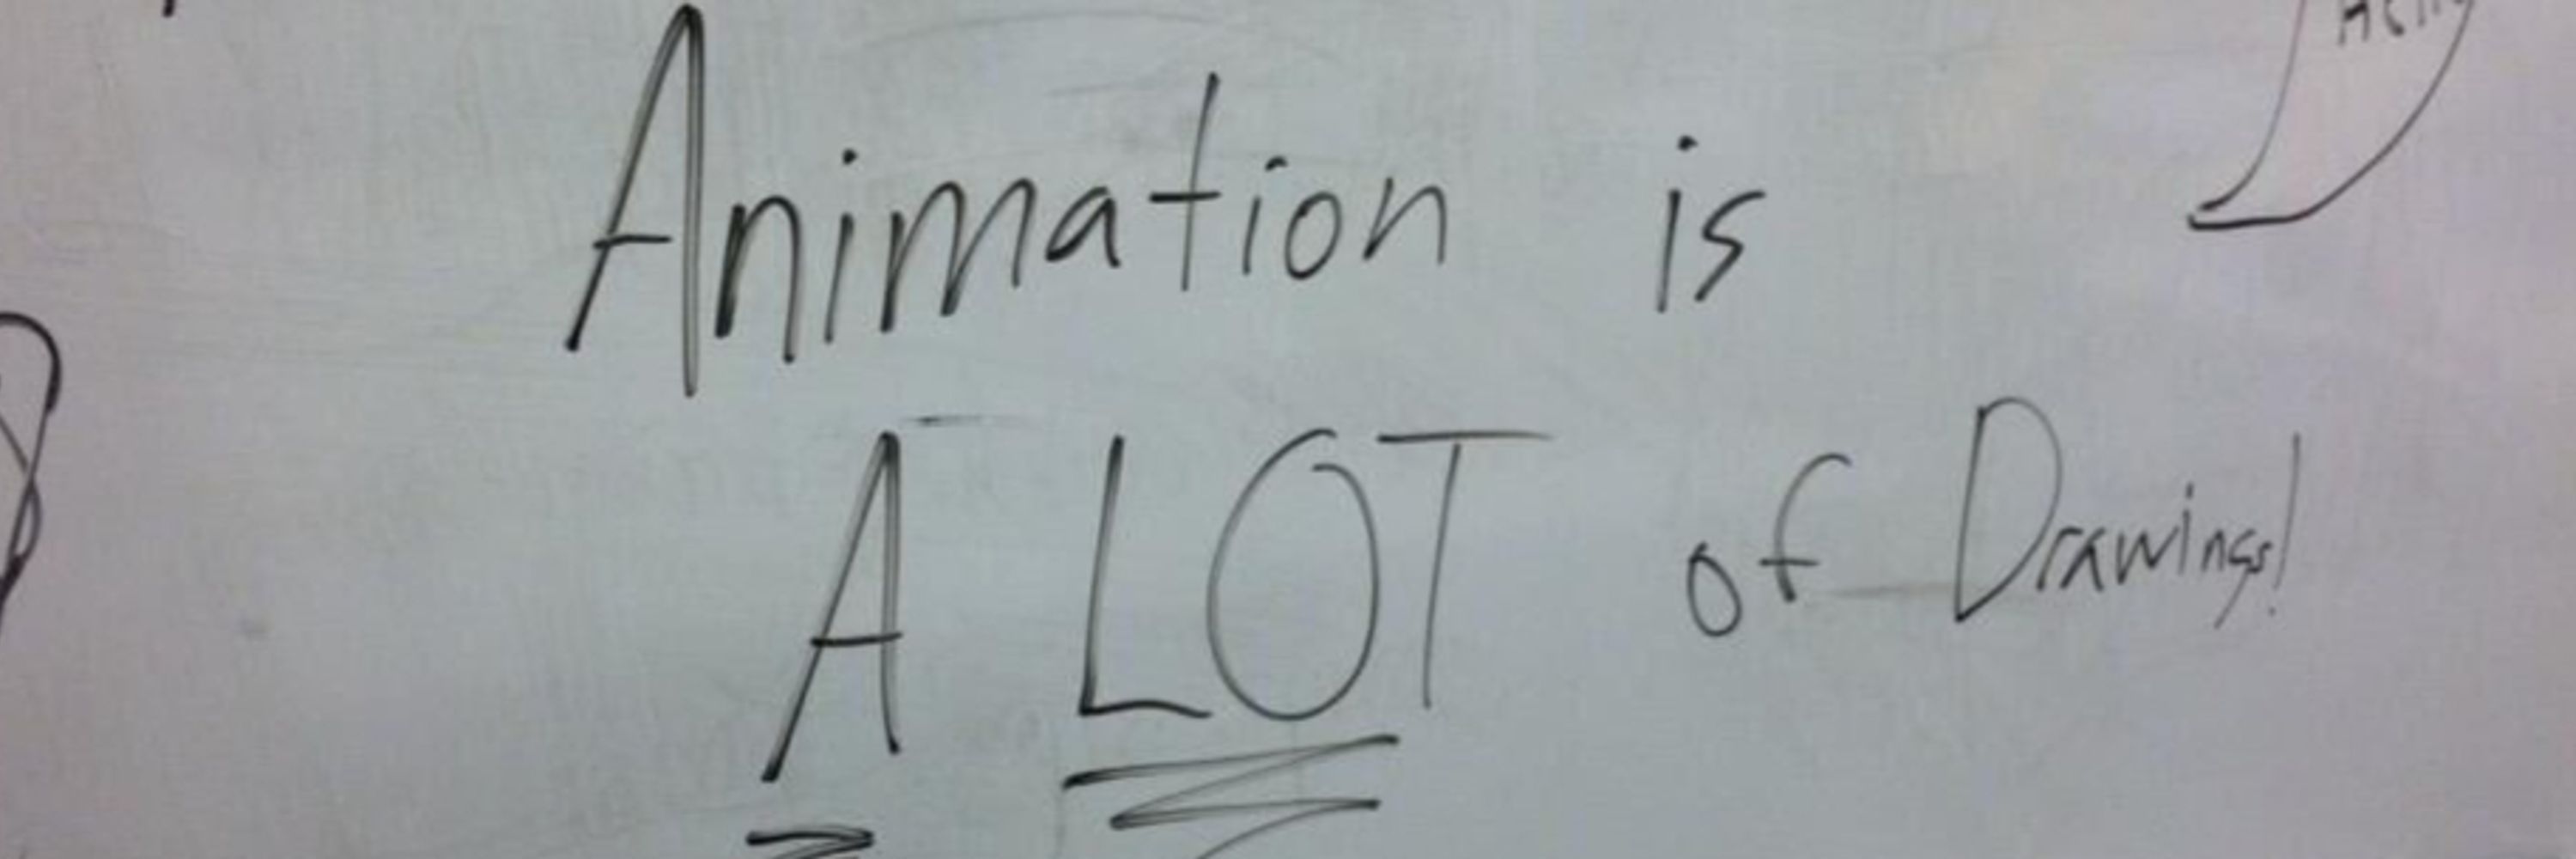 Animation is
A LOT of Drawings!